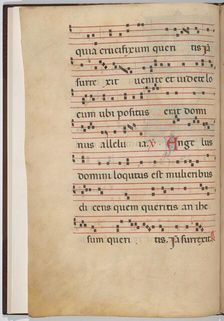 quia crucifixum queri tis ia
surre xit venite et videte lo
cum ubi positus erat domi
nus allelu ia. V. Ange lus
domini locutus est mulieribus
di cens quem queritis an ihe
sum queri tis. Ia surrexit